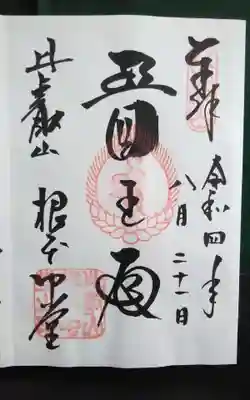 奉拝
令和四年
八月二十一日
醫王殿
比叡山 根本中堂